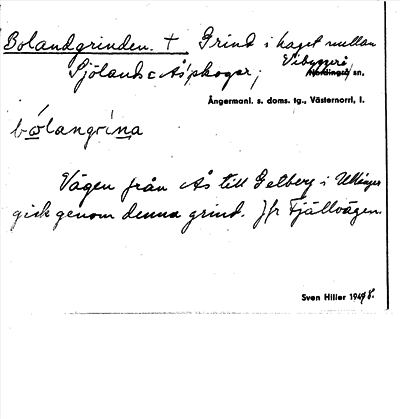 Bolandgrinden. † Grind i haget mellan
Sjöland o Ås' skogar; Vibyggerå
Nordingrå sn.
Ångermanl. s. doms. tg., Västernorrl, l.
bo̲langri̲na
Vägen från Ås till Getberg i Ullånger
gick genom denna grind. Jfr Fjällvägen.
Sven Hiller 1948.